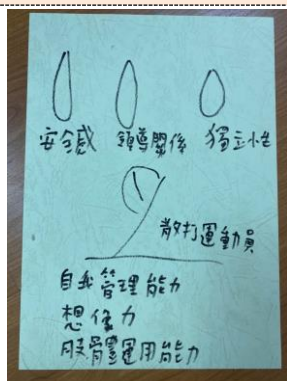 安全感 領導關係 獨立性
散打運動員
自我管理能力
想像力
肢體運用能力